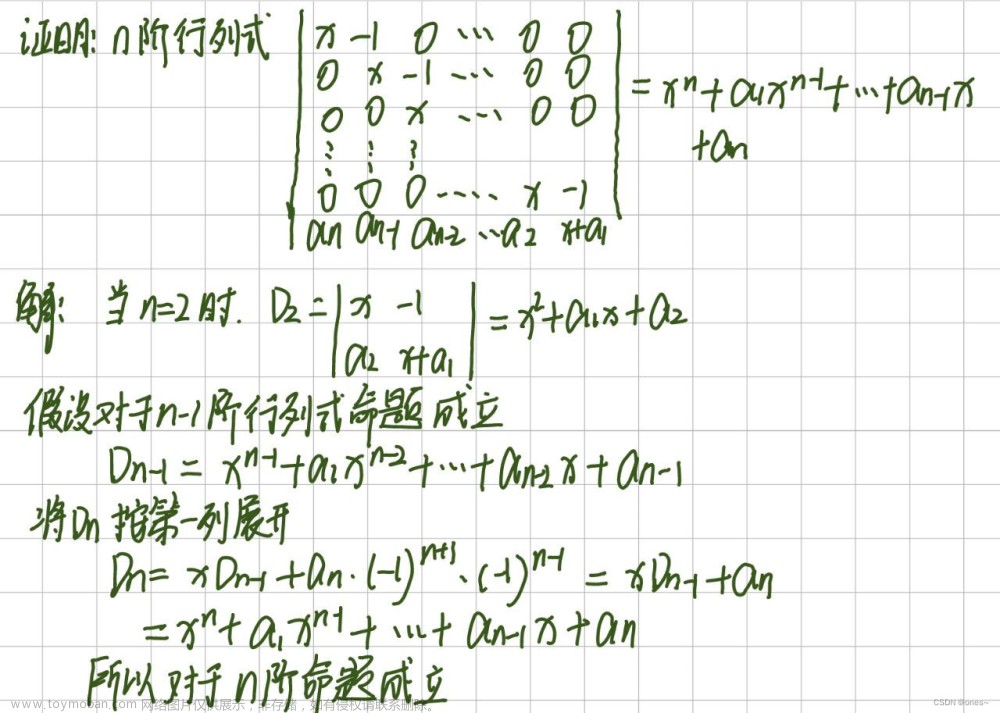 证明: n阶行列式
x -1 0 ⋯ 0 0
0 x -1 ⋯ 0 0
0 0 x ⋯ 0 0
⋮ ⋮ ⋮
0 0 0 ⋯⋯ x -1
aₙ aₙ₋₁ aₙ₋₂ ⋯ a₂ x+a₁
= xⁿ + a₁xⁿ⁻¹ + ⋯ + aₙ₋₁x
+ aₙ
解: 当 n=2 时. D₂ = | x -1
a₂ x+a₁ | = x² + a₁x + a₂
假设对于n-1阶行列式命题成立
Dₙ₋₁ = xⁿ⁻¹ + a₁xⁿ⁻² + ⋯ + aₙ₋₂x + aₙ₋₁
将Dₙ按第一列展开
Dₙ = xDₙ₋₁ + aₙ·(-1)ⁿ⁺¹·(-1)ⁿ⁻¹ = xDₙ₋₁ + aₙ
= xⁿ + a₁xⁿ⁻¹ + ⋯ + aₙ₋₁x + aₙ
所以对于n阶命题成立
www.toymoban.com 网络图片仅供展示，非存储，如有侵权请联系删除。
CSDN @ones~